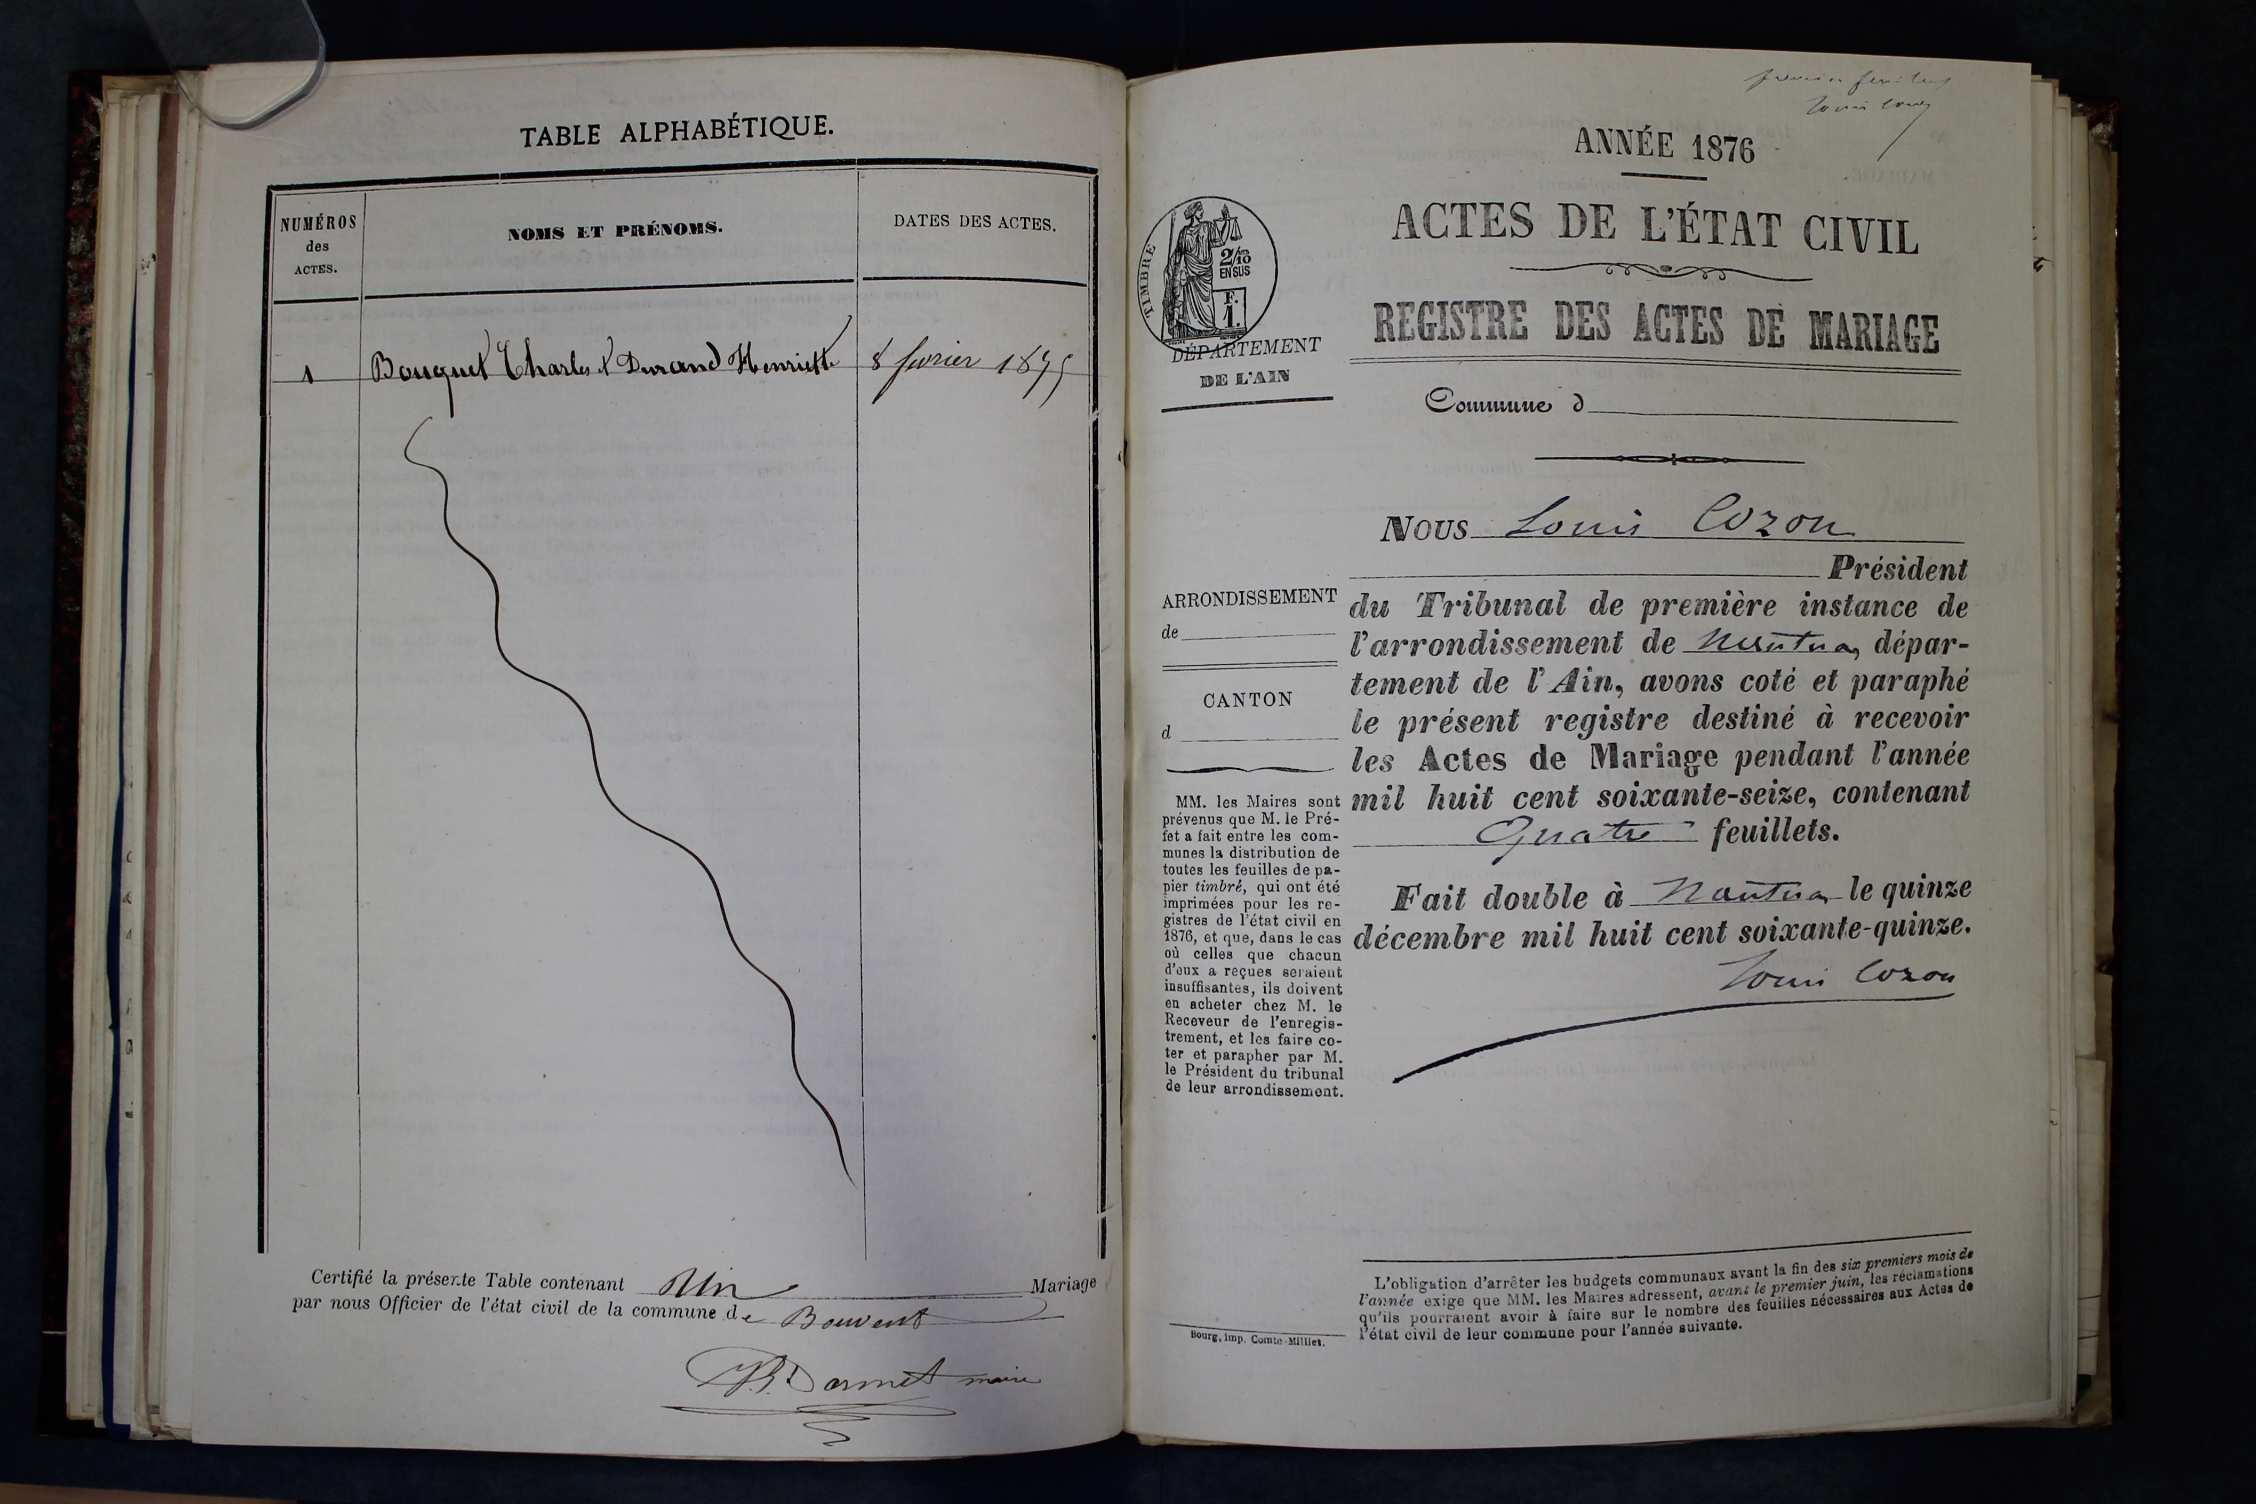 TABLE ALPHABÉTIQUE.
NUMÉROS
des
ACTES.
NOMS ET PRÉNOMS.
DATES DES ACTES.
1 Bouquet Charles et Durand Henriette 8 février 1875
Certifié la présente Table contenant Un Mariage
par nous Officier de l'état civil de la commune de Bouvent
Darmet maire
premier feuillet
Louis Cozon
ANNÉE 1876
ACTES DE L'ÉTAT CIVIL
REGISTRE DES ACTES DE MARIAGE
TIMBRE
2/10
EN SUS
F.
1.
DÉPARTEMENT
DE L'AIN
Commune d
NOUS Louis Cozon
Président
du Tribunal de première instance de
l'arrondissement de Nantua, dépar-
tement de l'Ain, avons coté et paraphé
le présent registre destiné à recevoir
les Actes de Mariage pendant l'année
mil huit cent soixante-seize, contenant
Quatre feuillets.
Fait double à Nantua le quinze
décembre mil huit cent soixante-quinze.
Louis Cozon
ARRONDISSEMENT
de
CANTON
d
MM. les Maires sont
prévenus que M. le Pré-
fet a fait entre les com-
munes la distribution de
toutes les feuilles de pa-
pier timbré, qui ont été
imprimées pour les re-
gistres de l'état civil en
1876, et que, dans le cas
où celles que chacun
d'eux a reçues seraient
insuffisantes, ils doivent
en acheter chez M. le
Receveur de l'enregis-
trement, et les faire co-
ter et parapher par M.
le Président du tribunal
de leur arrondissement.
Bourg, imp. Comte-Milliet.
L'obligation d'arrêter les budgets communaux avant la fin des six premiers mois de
l'année exige que MM. les Maires adressent, avant le premier juin, les réclamations
qu'ils pourraient avoir à faire sur le nombre des feuilles nécessaires aux Actes de
l'état civil de leur commune pour l'année suivante.